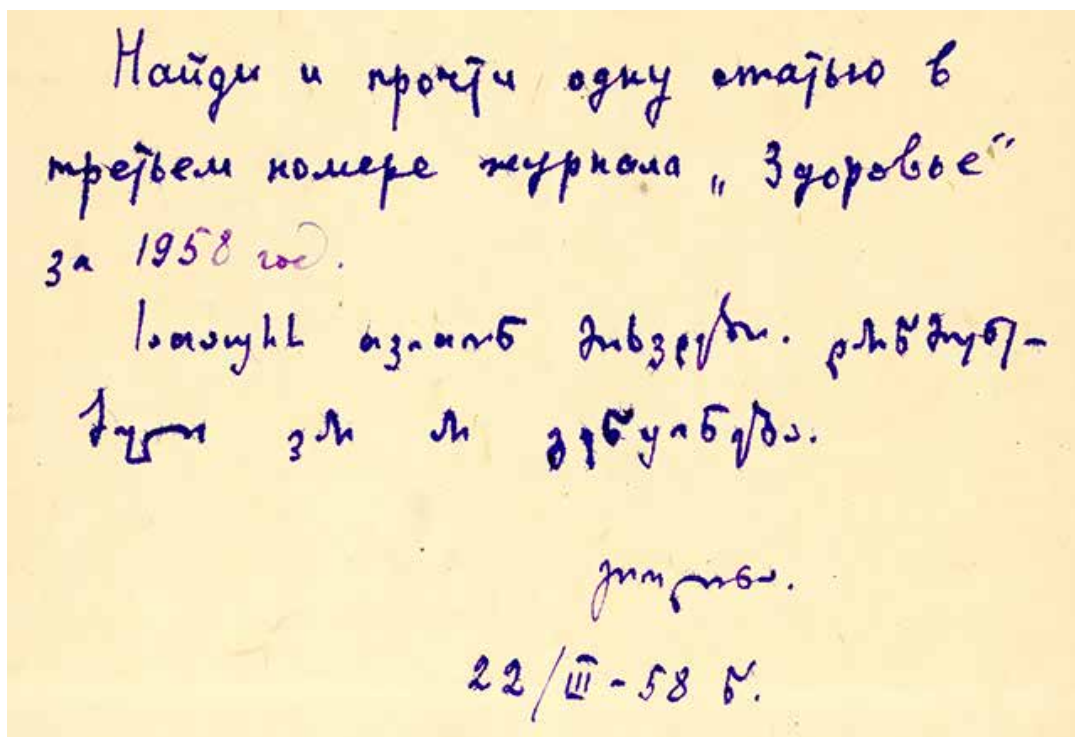 Найди и прочти одну статью в
третьем номере журнала „Здоровье“
за 1958 год.
სათაურს თვითონ მიხვდები. დარწმუნე-
ბული ვარ არ გეწყინება.
22/III-58 წ.